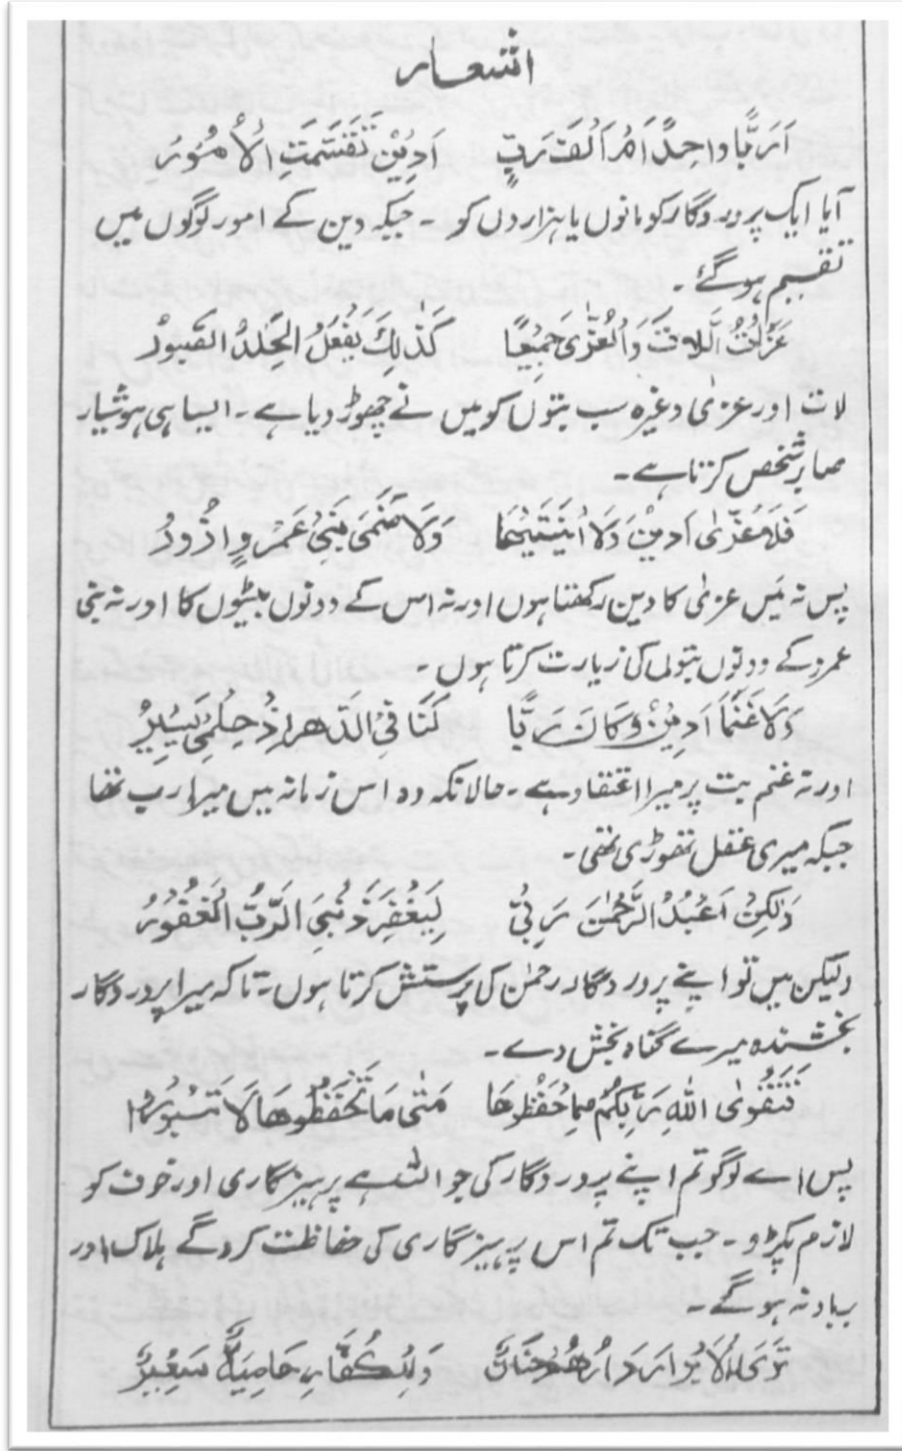 اشعار
اَرَبًّا واحِدًا اَمْ اَلْفَ رَبٍّ اَدِيْنُ تَقَسَّمَتِ الْاُمُوْرُ
آیا ایک پروردگار کو مانوں یا ہزاردں کو ۔ جبکہ دین کے امور لوگوں میں
تقسیم ہوگئے ۔
عَزَلْتُ اللَّاتَ وَالْعُزّٰى جَمِيْعًا كَذٰلِكَ يَفْعَلُ الْجَلْدُ الصَّبُوْرُ
لات اور عزیٰ وغیرہ سب بتوں کو میں نے چھوڑ دیا ہے ۔ ایسا ہی ہوشیار
صابر شخص کرتا ہے ۔
فَلَا عُزّٰى اَدِيْنُ وَلَا ابْنَتَيْهَا وَلَا صَنَمَيْ بَنِيْ عَمْرٍو اَزُوْرُ
پس نہ میں عزیٰ کا دین رکھتا ہوں اور نہ اس کے دونوں بیٹیوں کا اور نہ بنی
عمرو کے دونوں بتوں کی زیارت کرتا ہوں ۔
وَلَا غَنْمًا اَدِيْنُ وَكَانَ رَبًّا لَنَا فِي الدَّهْرِ اِذْ حِلْمِيْ يَسِيْرُ
اور نہ غنم بت پر میرا اعتقاد ہے ۔ حالانکہ وہ اس زمانہ میں میرا رب تھا
جبکہ میری عقل تھوڑی تھی ۔
وَلٰكِنْ اَعْبُدُ الرَّحْمٰنَ رَبِّيْ لِيَغْفِرَ ذَنْبِيَ الرَّبُّ الْغَفُوْرُ
ولیکن میں تو اپنے پروردگار رحمٰن کی پرستش کرتا ہوں ۔ تاکہ میرا پروردگار
بخشندہ میرے گناہ بخش دے ۔
فَتَقْوَى اللهِ رَبِّكُمُ احْفَظُوهَا مَتٰى مَا تَحْفَظُوهَا لَا تَبُوْرُوْا
پس اے لوگو تم اپنے پروردگار کی جو اللہ ہے پرہیزگاری اور خوف کو
لازم پکڑو ۔ جب تک تم اس پرہیزگاری کی حفاظت کروگے ہلاک اور
برباد نہ ہوگے ۔
تَرَى الْاَبْرَارَ دَارُهُمْ جِنَانٌ وَلِلْكُفَّارِ حَامِيَةٌ سَعِيْرٌ